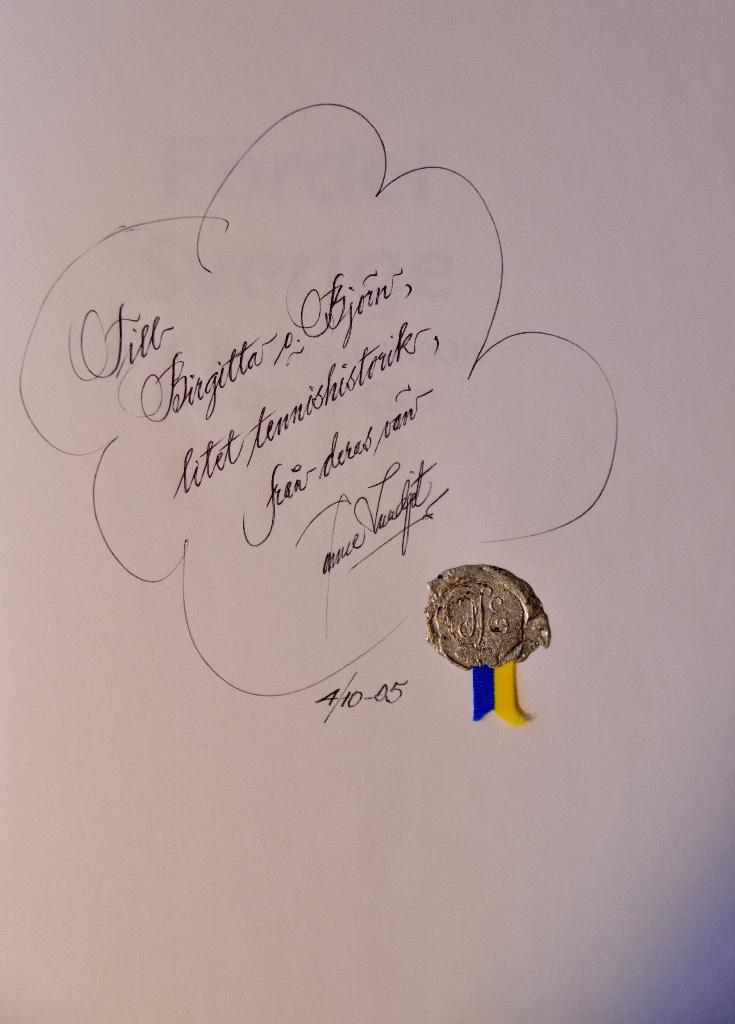 Fördel
Sverige
Till
Birgitta o. Björn,
litet tennishistorik,
från deras vän
4/10-05